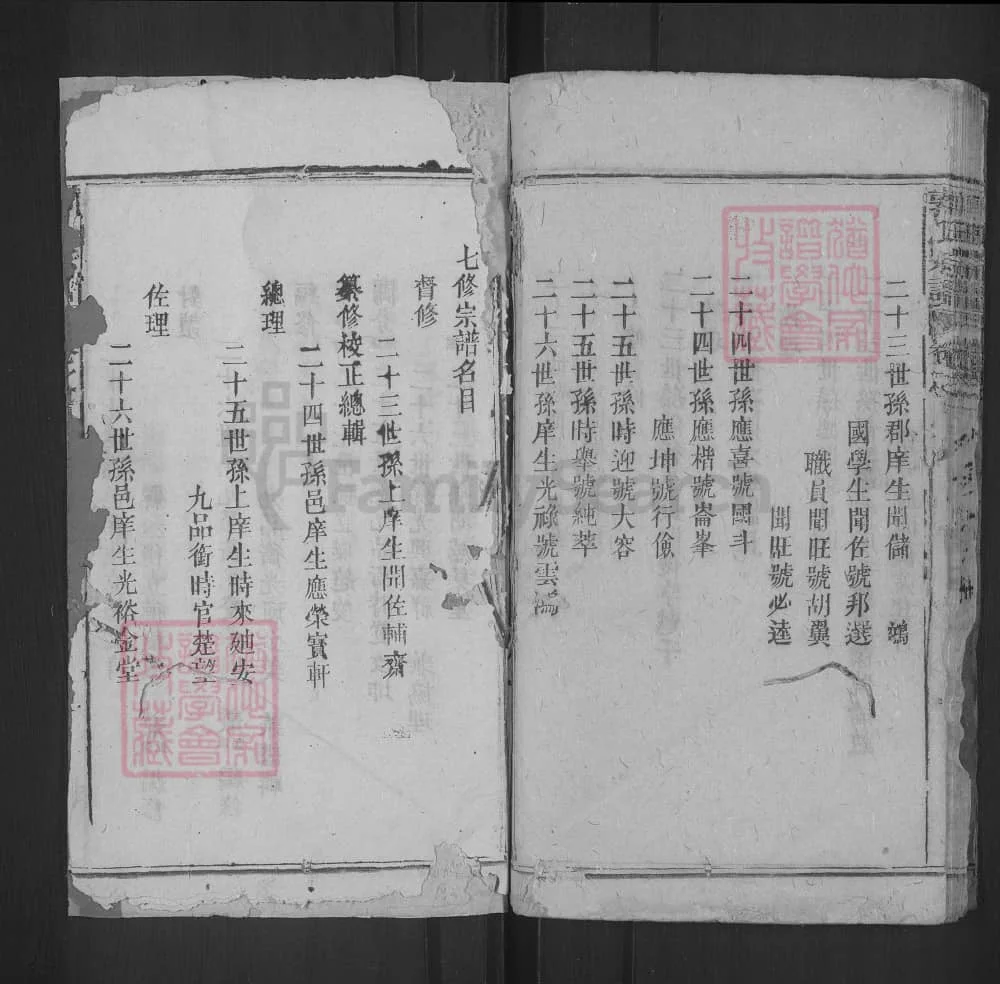 二十三世孫郡庠生開儲
國學生聞佐號邦選
職員聞旺號胡翼
聞旺號必達
二十四世孫應喜號國斗
二十四世孫應楷號崙峯
應坤號行儉
二十五世孫時迎號大容
二十五世孫時舉號純萃
二十六世孫庠生光祿號雲鴻
七修宗譜名目
督修
二十三世孫上庠生開佐輔齋
纂修校正總輯
二十四世孫邑庠生應榮寳軒
總理
二十五世孫上庠生時來廸安
九品銜時官楚望
佐理
二十六世孫邑庠生光裕金堂
譜學會
特藏
FamilySearch